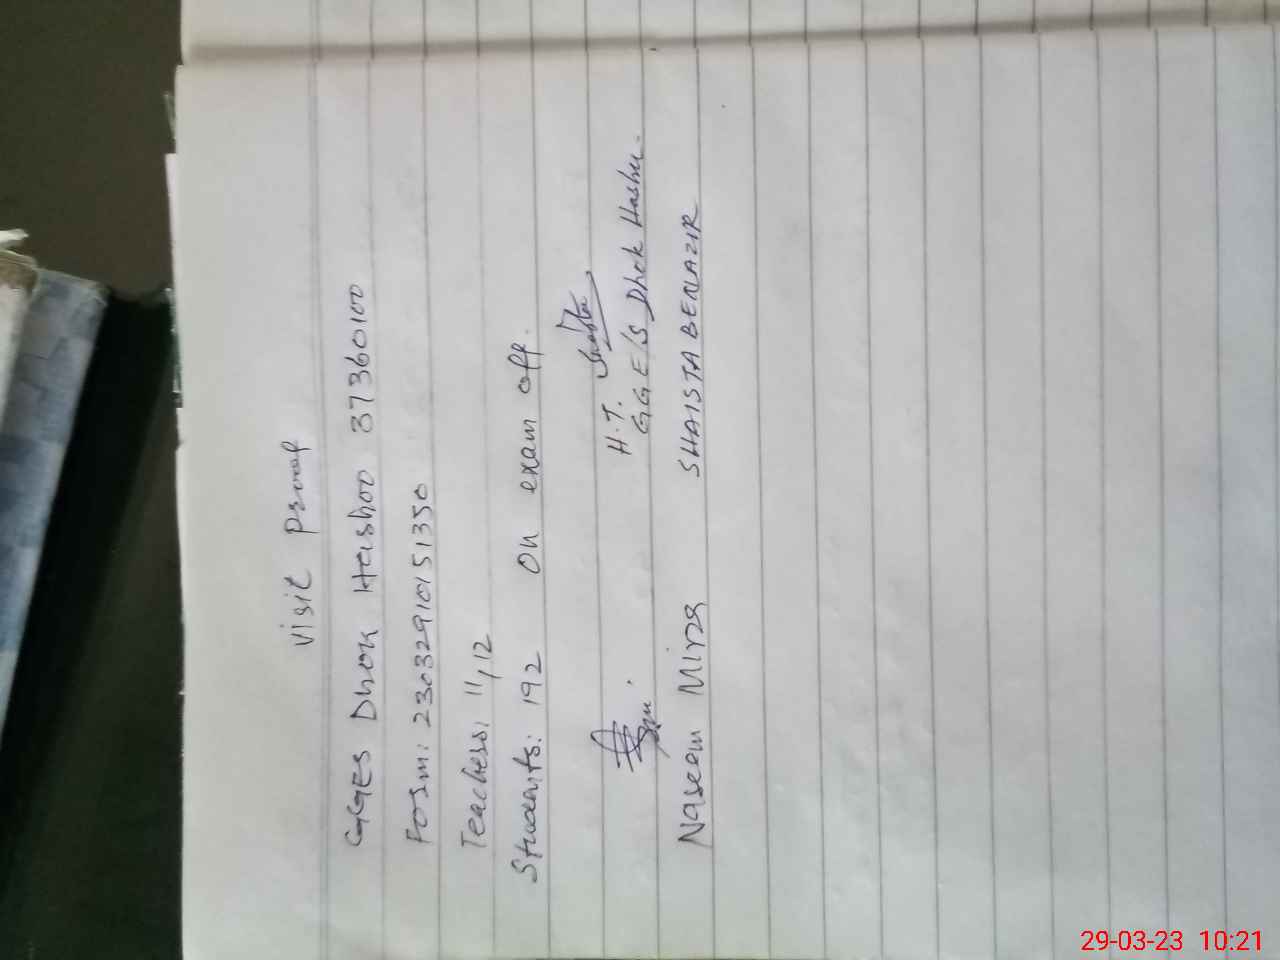 Visit Proof
GGES Dhok Hashoo 37360100
Form: 23032910151350
Teachers: 11,12
Students: 192 On exam off.
H.T.
GGE/S Dhok Hashu.
Naseem Mirza SHAISTA BENAZIR
29-03-23 10:21